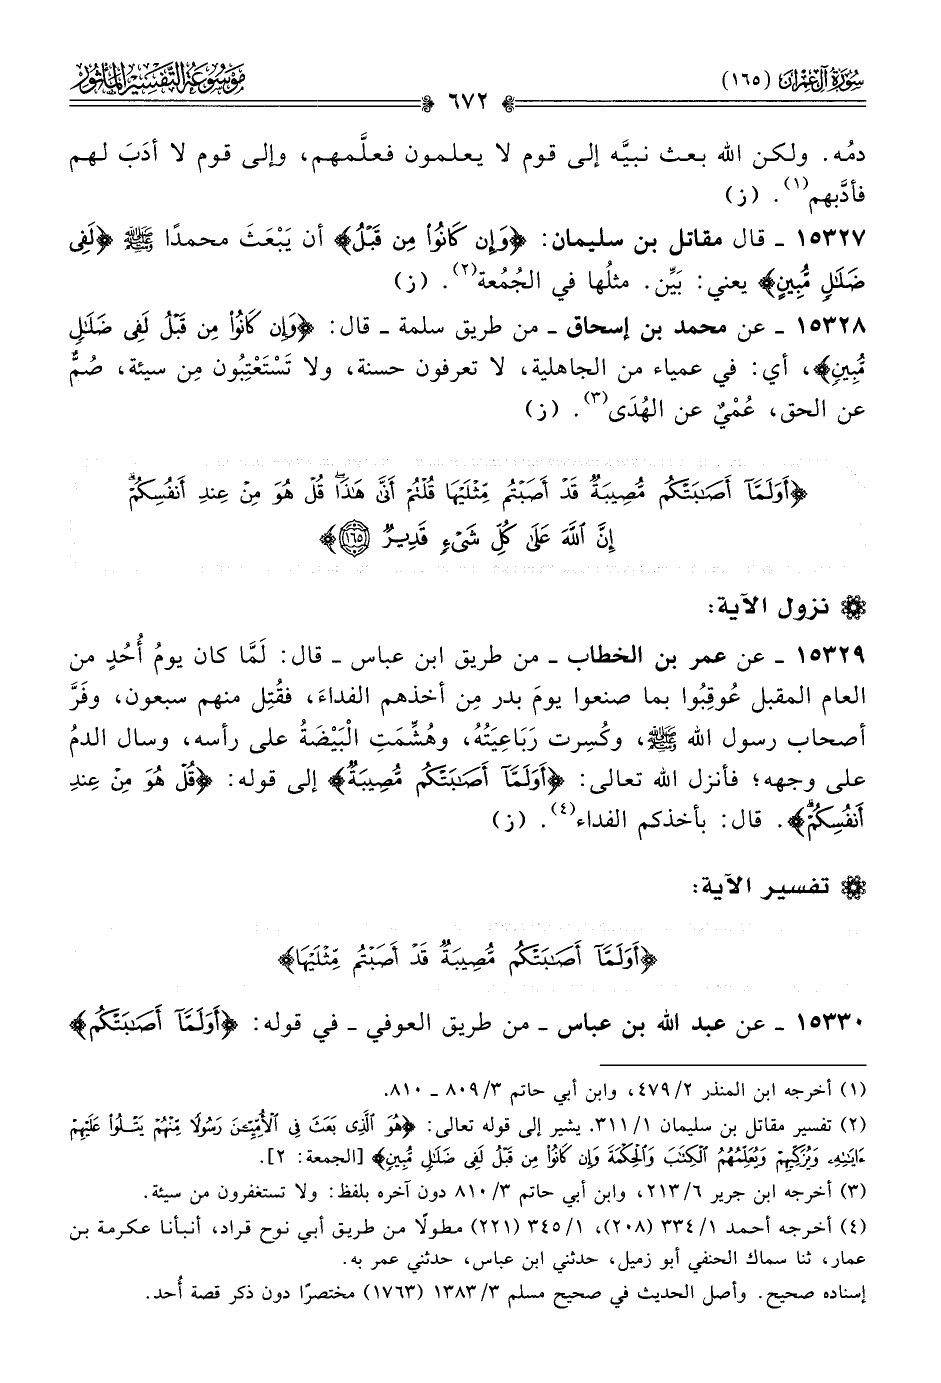 سُورَةُ آلِ عِمْرَان (١٦٥)
مَوْسُوعَة التَّفْسِيرِ المَأْثُور
٦٧٢
دمُه. ولكن الله بعث نبيَّه إلى قوم لا يعلمون فعلَّمهم، وإلى قوم لا أدَبَ لهم
فأدَّبهم(١). (ز)
١٥٣٢٧ ـ قال مقاتل بن سليمان: ﴿وَإِن كَانُوا۟ مِن قَبْلُ﴾ أن يَبْعَثَ محمدًا ﷺ ﴿لَفِى
ضَلَـٰلٍ مُّبِينٍ﴾ يعني: بَيِّن. مثلُها في الجُمُعة(٢). (ز)
١٥٣٢٨ ـ عن محمد بن إسحاق ـ من طريق سلمة ـ قال: ﴿وَإِن كَانُوا۟ مِن قَبْلُ لَفِى ضَلَـٰلٍ
مُّبِينٍ﴾، أي: في عمياء من الجاهلية، لا تعرفون حسنة، ولا تَسْتَعْتِبُون مِن سيئة، صُمٌّ
عن الحق، عُمْيٌ عن الهُدَى(٣). (ز)
﴿أَوَلَمَّآ أَصَـٰبَتْكُم مُّصِيبَةٌ قَدْ أَصَبْتُم مِّثْلَيْهَا قُلْتُمْ أَنَّىٰ هَـٰذَا ۖ قُلْ هُوَ مِنْ عِندِ أَنفُسِكُمْ ۗ
إِنَّ ٱللَّهَ عَلَىٰ كُلِّ شَىْءٍ قَدِيرٌ ١٦٥﴾
نزول الآية:
١٥٣٢٩ ـ عن عمر بن الخطاب ـ من طريق ابن عباس ـ قال: لَمَّا كان يومُ أُحُدٍ من
العام المقبل عُوقِبُوا بما صنعوا يومَ بدر مِن أخذهم الفداءَ، فقُتِل منهم سبعون، وفَرَّ
أصحاب رسول الله ﷺ، وكُسِرت رَبَاعِيَتُهُ، وهُشِّمَتِ الْبَيْضَةُ على رأسه، وسال الدمُ
على وجهه؛ فأنزل الله تعالى: ﴿أَوَلَمَّآ أَصَـٰبَتْكُم مُّصِيبَةٌ﴾ إلى قوله: ﴿قُلْ هُوَ مِنْ عِندِ
أَنفُسِكُمْ ۗ﴾. قال: بأخذكم الفداء(٤). (ز)
تفسير الآية:
﴿أَوَلَمَّآ أَصَـٰبَتْكُم مُّصِيبَةٌ قَدْ أَصَبْتُم مِّثْلَيْهَا﴾
١٥٣٣٠ ـ عن عبد الله بن عباس ـ من طريق العوفي ـ في قوله: ﴿أَوَلَمَّآ أَصَـٰبَتْكُم﴾
(١) أخرجه ابن المنذر ٤٧٩/٢، وابن أبي حاتم ٨٠٩/٣ ـ ٨١٠.
(٢) تفسير مقاتل بن سليمان ٣١١/١. يشير إلى قوله تعالى: ﴿هُوَ ٱلَّذِى بَعَثَ فِى ٱلْأُمِّيِّـۧنَ رَسُولًا مِّنْهُمْ يَتْلُوا۟ عَلَيْهِمْ
ءَايَـٰتِهِۦ وَيُزَكِّيهِمْ وَيُعَلِّمُهُمُ ٱلْكِتَـٰبَ وَٱلْحِكْمَةَ وَإِن كَانُوا۟ مِن قَبْلُ لَفِى ضَلَـٰلٍ مُّبِينٍ﴾ [الجمعة: ٢].
(٣) أخرجه ابن جرير ٢١٣/٦، وابن أبي حاتم ٨١٠/٣ دون آخره بلفظ: ولا تستغفرون من سيئة.
(٤) أخرجه أحمد ٣٣٤/١ (٢٠٨)، ٣٤٥/١ (٢٢١) مطولًا من طريق أبي نوح قراد، أنبأنا عكرمة بن
عمار، ثنا سماك الحنفي أبو زميل، حدثني ابن عباس، حدثني عمر به.
إسناده صحيح. وأصل الحديث في صحيح مسلم ١٣٨٣/٣ (١٧٦٣) مختصرًا دون ذكر قصة أُحد.